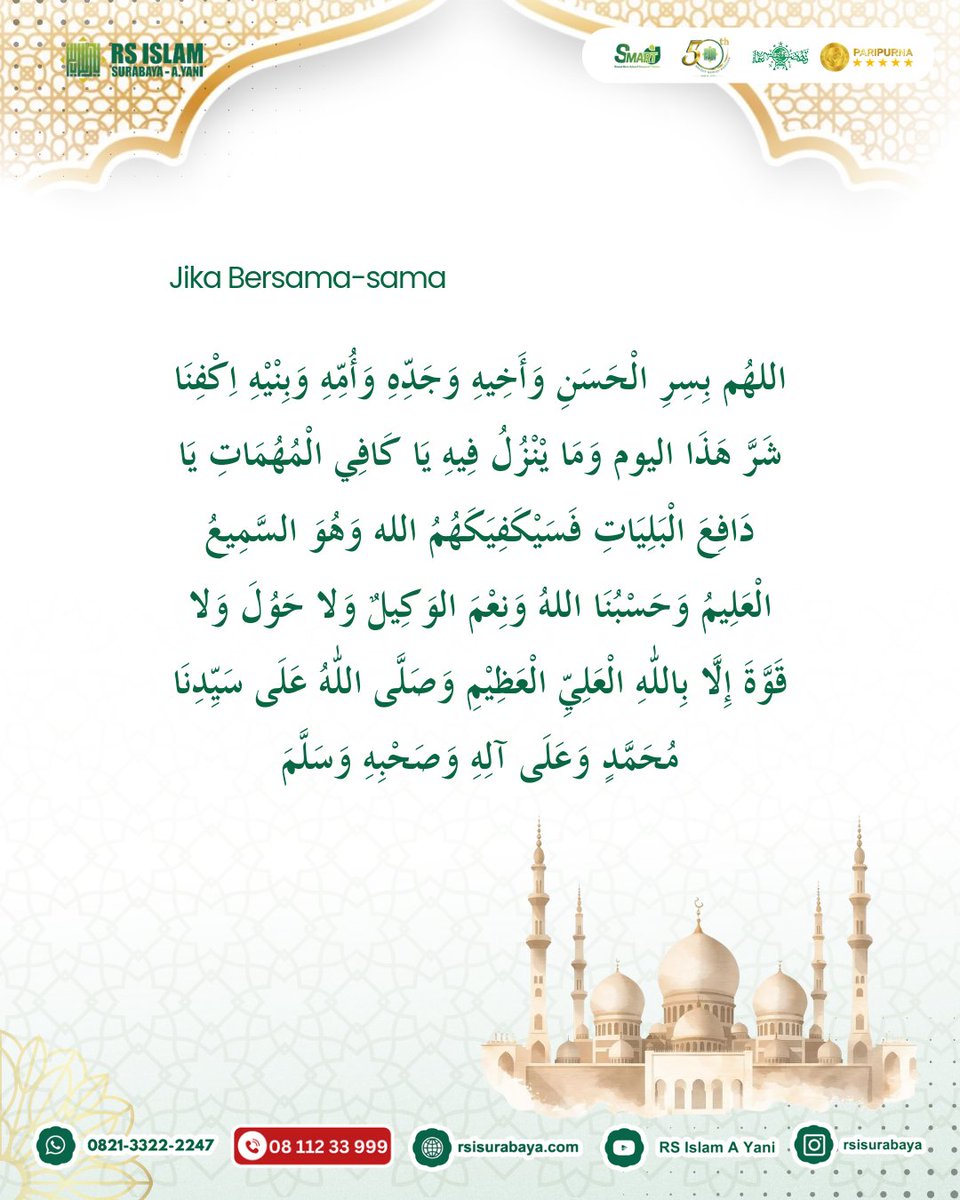 RS ISLAM
SURABAYA - A.YANI
SMART
50th
PARIPURNA
Jika Bersama-sama
اللهُم بِسِرِ الْحَسَنِ وَأَخِيهِ وَجَدِّهِ وَأُمِّهِ وَبِنْيْهِ اِكْفِنَا
شَرَّ هَذَا اليوم وَمَا يْنْزُلُ فِيهِ يَا كَافِي الْمُهُمَاتِ يَا
دَافِعَ الْبَلِيَاتِ فَسَيْكَفِيَكَهُمُ الله وَهُوَ السَّمِيعُ
الْعَلِيمُ وَحَسْبُنَا اللهُ وَنِعْمَ الوَكِيلٌ وَلا حَوُلَ وَلا
قَوَّةَ إِلَّا بِاللّٰهِ الْعَلِيِّ الْعَظِيْمِ وَصَلَّى اللّٰهُ عَلَى سَيِّدِنَا
مُحَمَّدٍ وَعَلَى آلِهِ وَصَحْبِهِ وَسَلَّمَ
0821-3322-2247
08 112 33 999
rsisurabaya.com
RS Islam A Yani
rsisurabaya